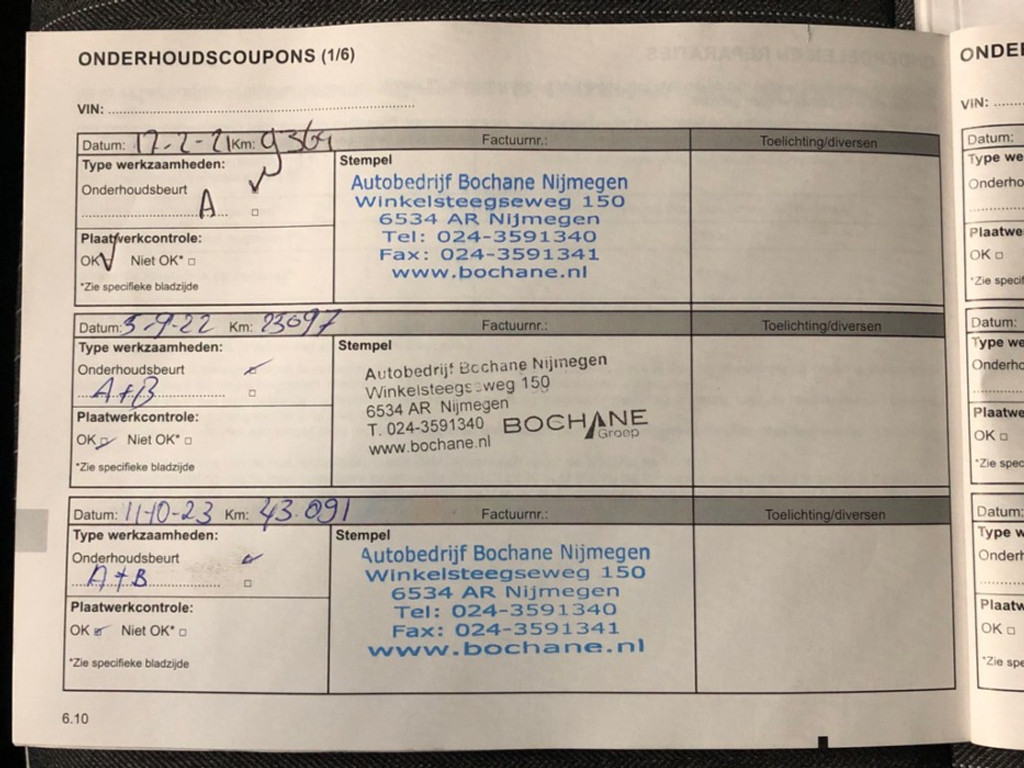 ONDERHOUDSCOUPONS (1/6)
VIN:
Datum: 17-2-21 Km: 9364 Factuurnr.: Toelichting/diversen
Type werkzaamheden:
Onderhoudsbeurt
A
Plaatwerkcontrole:
OK Niet OK*
*Zie specifieke bladzijde
Stempel
Autobedrijf Bochane Nijmegen
Winkelsteegseweg 150
6534 AR Nijmegen
Tel: 024-3591340
Fax: 024-3591341
www.bochane.nl
Datum: 5-9-22 Km: 23097 Factuurnr.: Toelichting/diversen
Type werkzaamheden:
Onderhoudsbeurt
A+B
Plaatwerkcontrole:
OK Niet OK*
*Zie specifieke bladzijde
Stempel
Autobedrijf Bochane Nijmegen
Winkelsteegseweg 150
6534 AR Nijmegen
T. 024-3591340
www.bochane.nl
BOCHANE
Groep
Datum: 11-10-23 Km: 43.091 Factuurnr.: Toelichting/diversen
Type werkzaamheden:
Onderhoudsbeurt
A+B
Plaatwerkcontrole:
OK Niet OK*
*Zie specifieke bladzijde
Stempel
Autobedrijf Bochane Nijmegen
Winkelsteegseweg 150
6534 AR Nijmegen
Tel: 024-3591340
Fax: 024-3591341
www.bochane.nl
6.10
VIN:
Datum:
OK
Datum:
OK
Datum:
OK